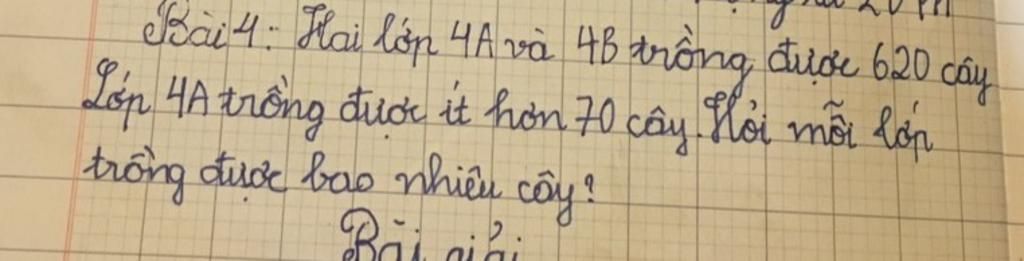 20 m
Bài 4: Hai lớp 4A và 4B trồng được 620 cây
Lớp 4A trồng được ít hơn 70 cây. Hỏi mỗi lớp
trồng được bao nhiêu cây?
Bài giải